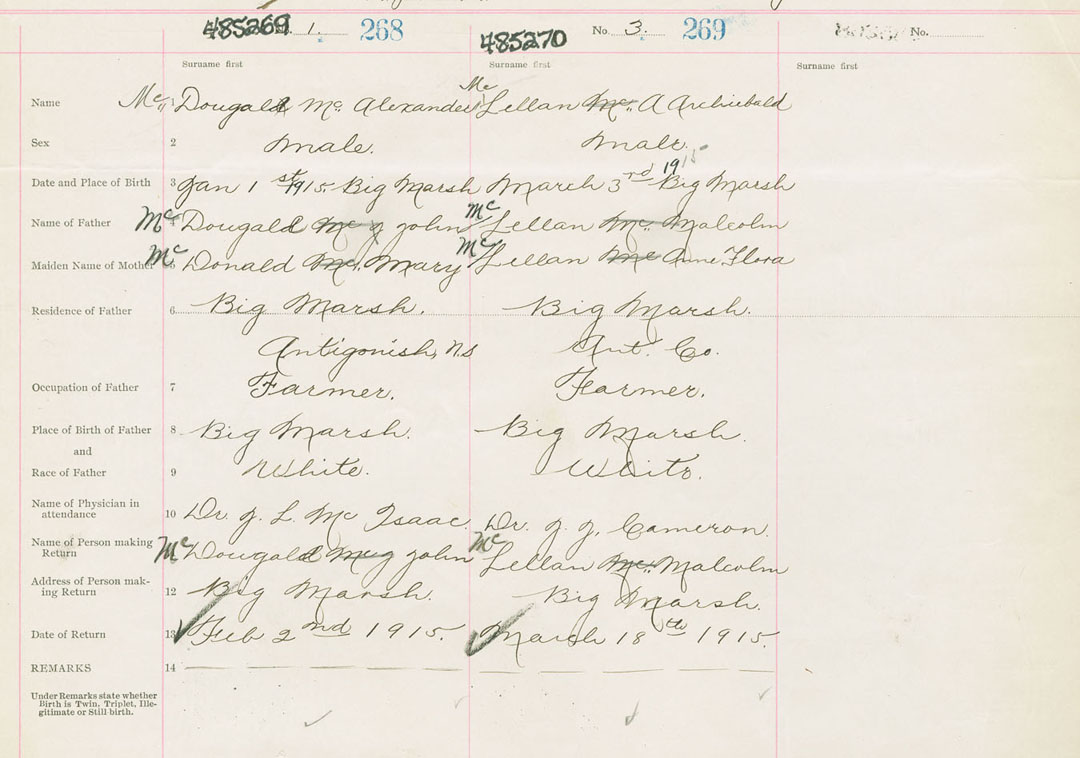 485269 1. 268 485270 No. 3. 269 No.
Surname first Surname first Surname first
Name Mc 1 Dougald Mc Alexander Mc Lellan Mc A Archiebald
Sex 2 Male. Male.
Date and Place of Birth 3 Jan 1st 1915 Big Marsh March 3rd 1915 Big Marsh
Name of Father Mc 4 Dougald Mc J John Mc Lellan Mc Malcolm
Maiden Name of Mother Mc 5 Donald Mc Mary Mc Lellan Mc Anne Flora
Residence of Father 6 Big Marsh. Big Marsh.
Antigonish, N.S Ant. Co.
Occupation of Father 7 Farmer. Farmer.
Place of Birth of Father 8 Big Marsh. Big Marsh.
and
Race of Father 9 White. White.
Name of Physician in
attendance 10 Dr. J. L. Mc Isaac. Dr. J. J. Cameron.
Name of Person making
Return Mc Dougald Mc J John Mc Lellan Mc Malcolm
Address of Person mak-
ing Return 12 Big Marsh. Big Marsh.
Date of Return 13 Feb 2nd 1915. March 18th 1915.
REMARKS 14
Under Remarks state whether
Birth is Twin, Triplet, Ille-
gitimate or Still birth.